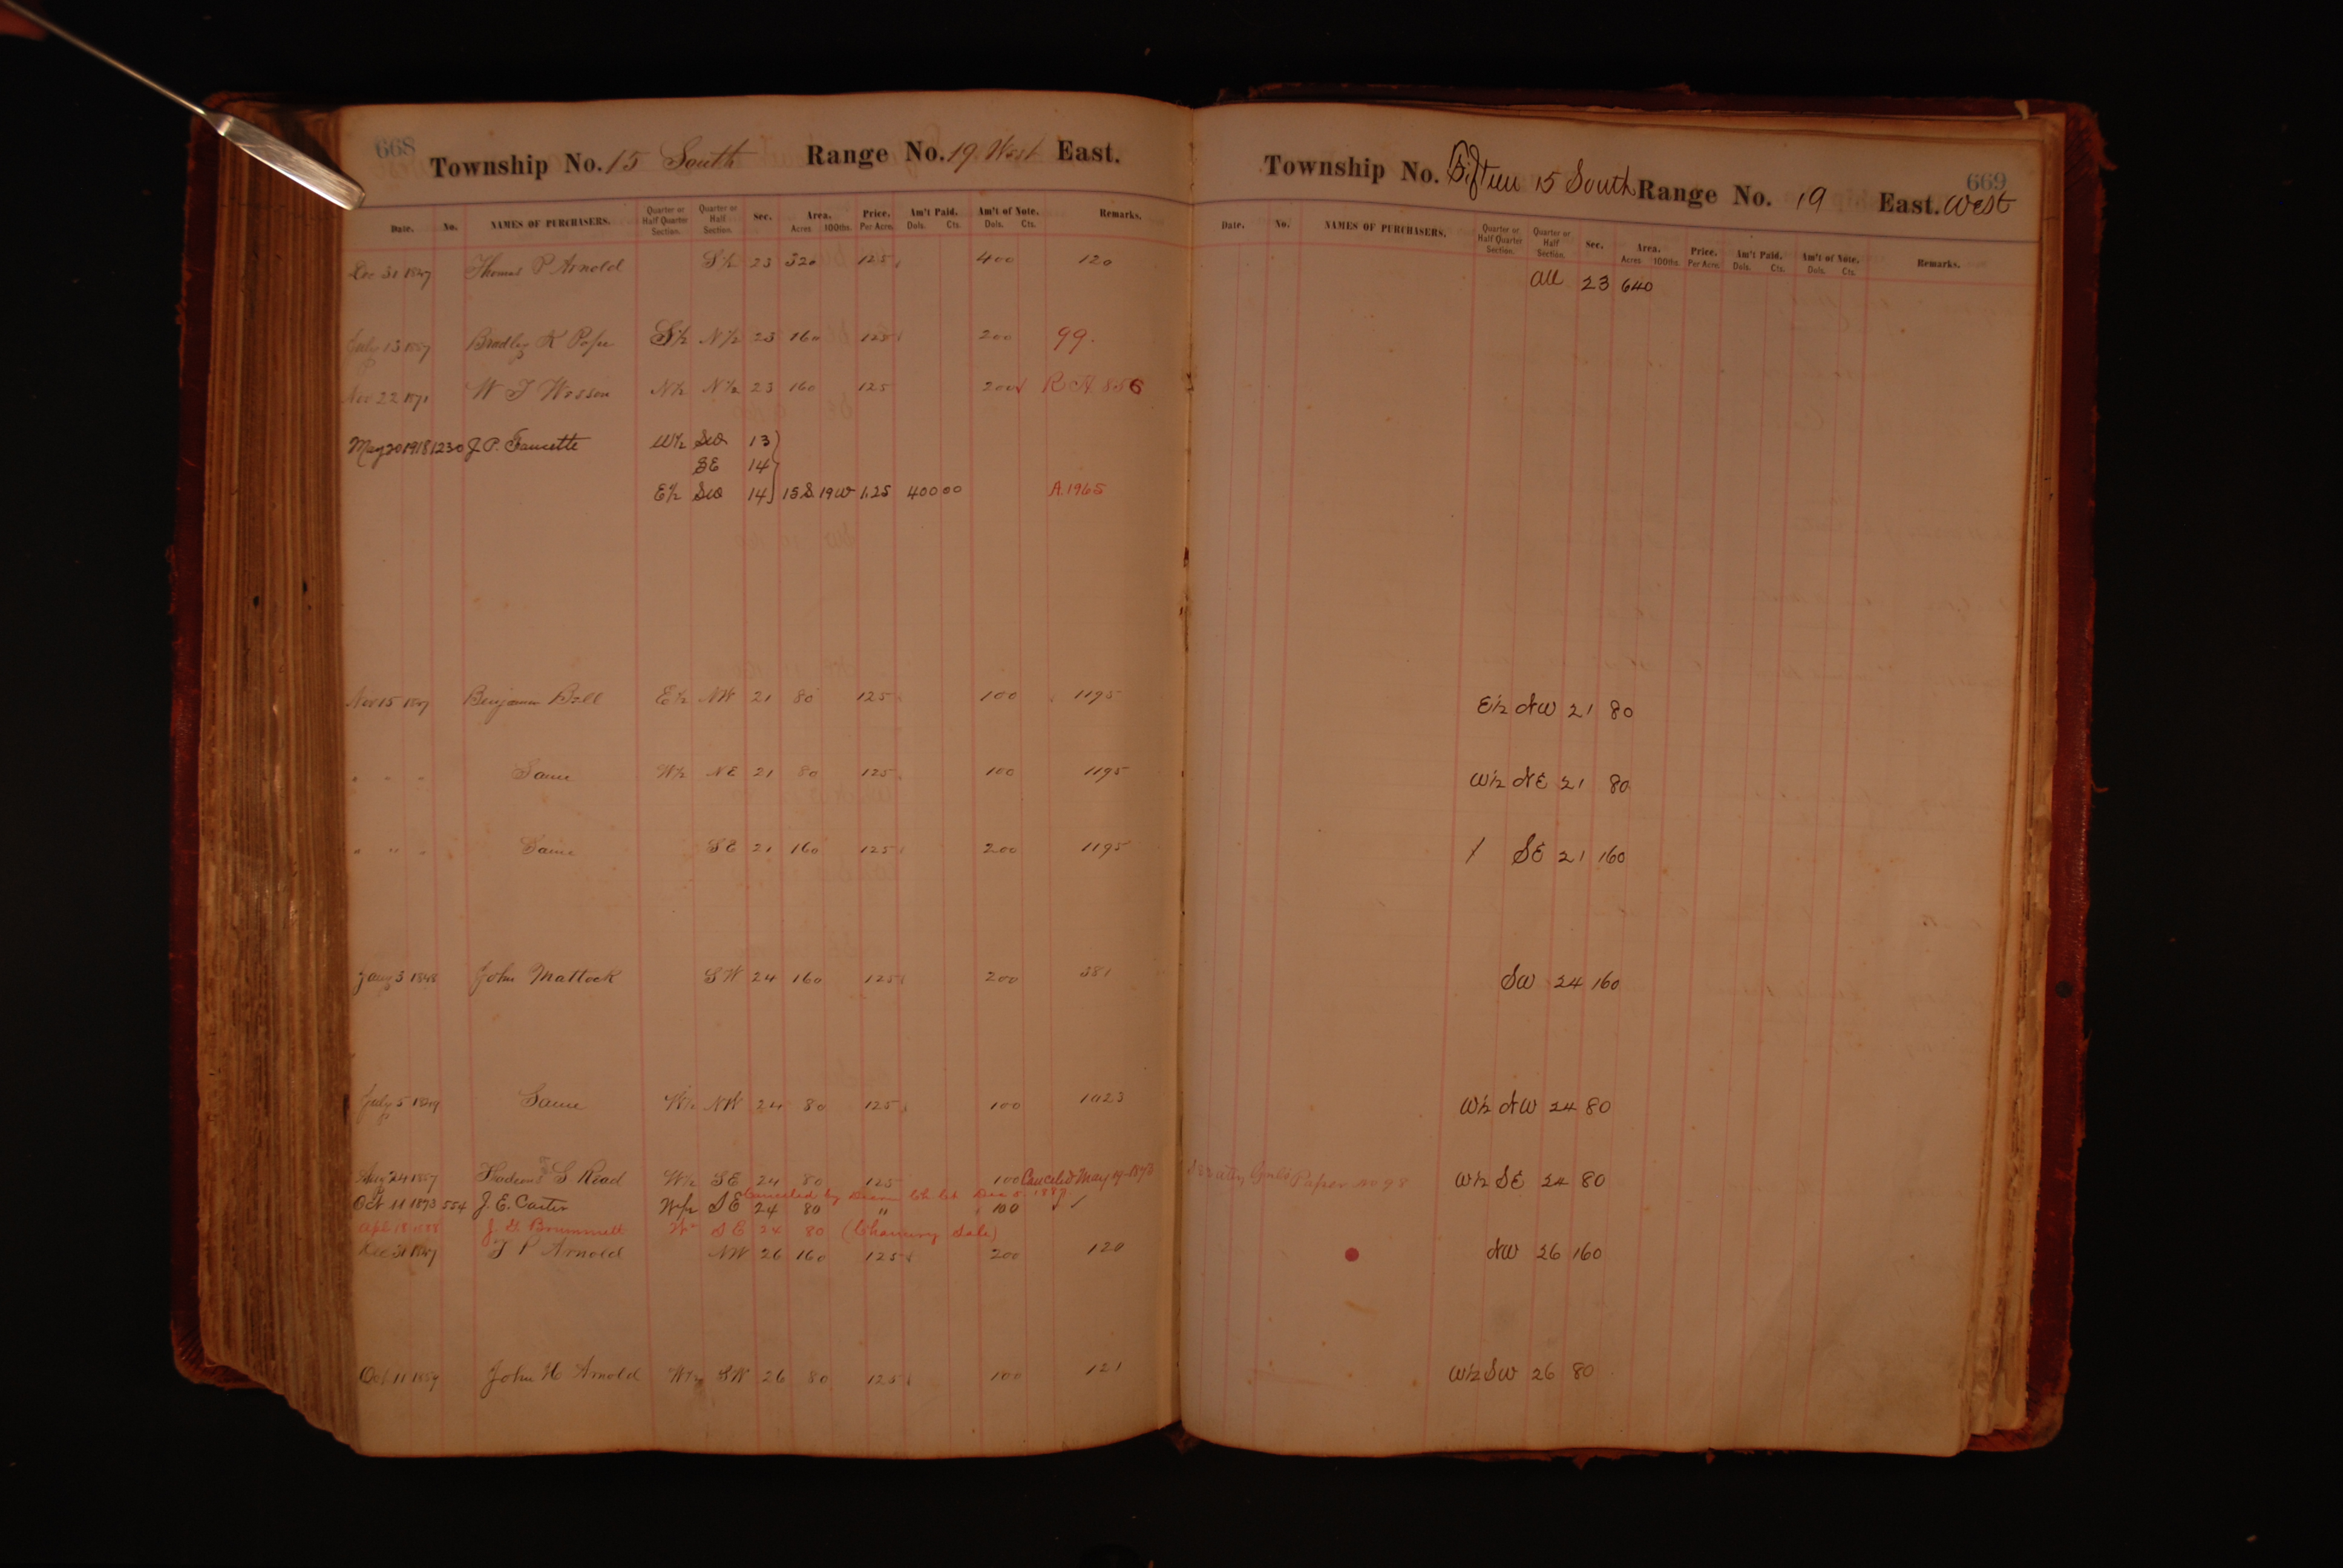 668
Township No. 15 South Range No. 19 West East.
Date. No. NAMES OF PURCHASERS. Quarter or Half Quarter Section. Quarter or Half Section. Sec. Area. Acres 100ths. Price. Per Acre. Am't Paid. Dols. Cts. Am't of Note. Dols. Cts. Remarks.
Dec 31 1847 Thomas P Arnold S½ 23 320 125 400 120
July 13 1857 Bradley K Pope S½ N½ 23 160 125 200 99.
Nov 22 1871 W T Wesson N½ N½ 23 160 125 200 R A 856
May 20 1918 1230 J. P. Faucette W½ SW 13
SE 14
E½ SW 14 15 S 19 W 1.25 400 00 A. 1965
Nov 15 Benjamin Bell E½ NW 21 80 125 100 1195
" " " Same W½ NE 21 80 125 100 1195
" " " Same SE 21 160 125 200 1195
Jany 3 1848 John Matlock SW 24 160 125 200 381
July 5 1849 Same W½ NW 24 80 125 100 1023
Aug 24 1857 S Read W½ SE 24 80 125 100 Canceled May 19-1873
Canceled by Dec 5 1887
Oct 11 1873 554 J. E. Carter W½ SE 24 80 " 100 ✓
Apl 18 1888 J. G. Brummett W½ SE 24 80 (Chancery Sale)
Dec 31 1847 T P Arnold NW 26 160 125 200 120
Oct 11 1859 John H Arnold W½ SW 26 80 125 100 121
669
Township No. Fifteen 15 South Range No. 19 East. West
Date. No. NAMES OF PURCHASERS. Quarter or Half Quarter Section. Quarter or Half Section. Sec. Area. Acres 100ths. Price. Per Acre. Am't Paid. Dols. Cts. Am't of Note. Dols. Cts. Remarks.
All 23 640
E½ NW 21 80
W½ NE 21 80
/ SE 21 160
SW 24 160
W½ NW 24 80
See Atty Genl's Paper No 98 W½ SE 24 80
NW 26 160
W½ SW 26 80